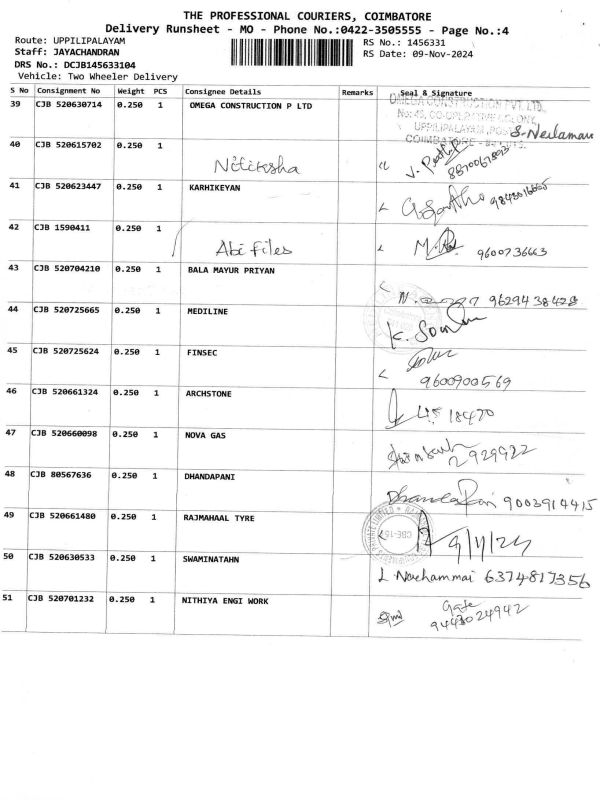 THE PROFESSIONAL COURIERS, COIMBATORE
Delivery Runsheet - MO - Phone No.:0422-3505555 - Page No.:4
Route: UPPILIPALAYAM RS No.: 1456331
Staff: JAYACHANDRAN RS Date: 09-Nov-2024
DRS No.: DCJB145633104
Vehicle: Two Wheeler Delivery
S No Consignment No Weight PCS Consignee Details Remarks Seal & Signature
39 CJB 520630714 0.250 1 OMEGA CONSTRUCTION P LTD
OMEGA CONSTRUCTION PVT. LTD.,
No: 45, CO-OPERATIVE COLONY,
UPPILIPALAYAM, POST
COIMBATORE
40 CJB 520615702 0.250 1 Nitiksha
41 CJB 520623447 0.250 1 KARHIKEYAN
42 CJB 1590411 0.250 1 Abi Files M. 9600736663
43 CJB 520704210 0.250 1 BALA MAYUR PRIYAN N. 9629438428
44 CJB 520725665 0.250 1 MEDILINE K.
45 CJB 520725624 0.250 1 FINSEC 9600900569
46 CJB 520661324 0.250 1 ARCHSTONE 18470
47 CJB 520660098 0.250 1 NOVA GAS 2929922
48 CJB 80567636 0.250 1 DHANDAPANI DhandaPani 9003914415
49 CJB 520661480 0.250 1 RAJMAHAAL TYRE 9/11/24
50 CJB 520630533 0.250 1 SWAMINATAHN L Nachammai 6374817356
51 CJB 520701232 0.250 1 NITHIYA ENGI WORK Gate
9443024942